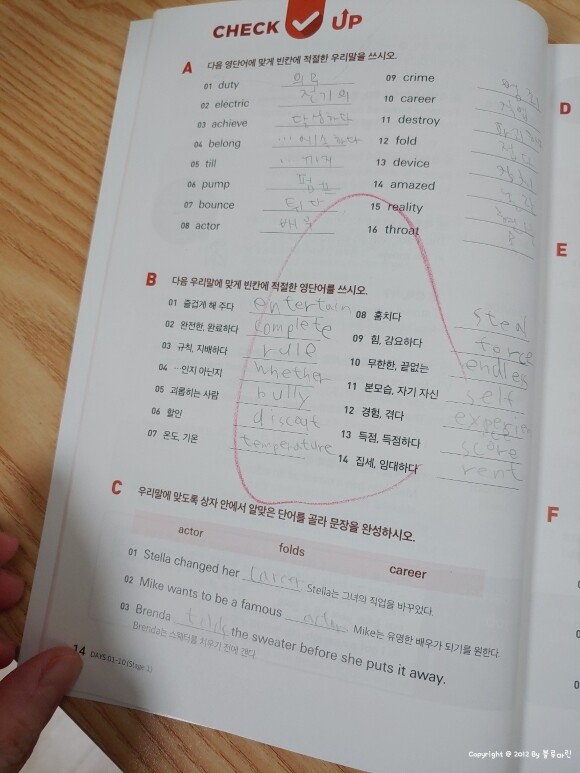 CHECK UP
A 다음 영단어에 맞게 빈칸에 적절한 우리말을 쓰시오.
01 duty 의무
02 electric 전기의
03 achieve 달성하다
04 belong …에 속하다
05 till …까지
06 pump 펌프
07 bounce 튀다
08 actor 배우
09 crime
10 career 직업
11 destroy
12 fold
13 device
14 amazed
15 reality
16 throat
B 다음 우리말에 맞게 빈칸에 적절한 영단어를 쓰시오.
01 즐겁게 해 주다 entertain
02 완전한, 완료하다 complete
03 규칙, 지배하다 rule
04 …인지 아닌지 whether
05 괴롭히는 사람 bully
06 할인 discout
07 온도, 기온 temperature
08 훔치다 steal
09 힘, 강요하다 force
10 무한한, 끝없는 endless
11 본모습, 자기 자신 self
12 경험, 겪다
13 득점, 득점하다 score
14 집세, 임대하다 rent
C 우리말에 맞도록 상자 안에서 알맞은 단어를 골라 문장을 완성하시오.
actor folds career
01 Stella changed her career Stella는 그녀의 직업을 바꾸었다.
02 Mike wants to be a famous actor Mike는 유명한 배우가 되기를 원한다.
03 Brenda folds the sweater before she puts it away.
Brenda는 스웨터를 치우기 전에 갠다.
14 DAYS 01-10 (Stage 1)
D
E
F
Copyright @ 2012 By 블루마린